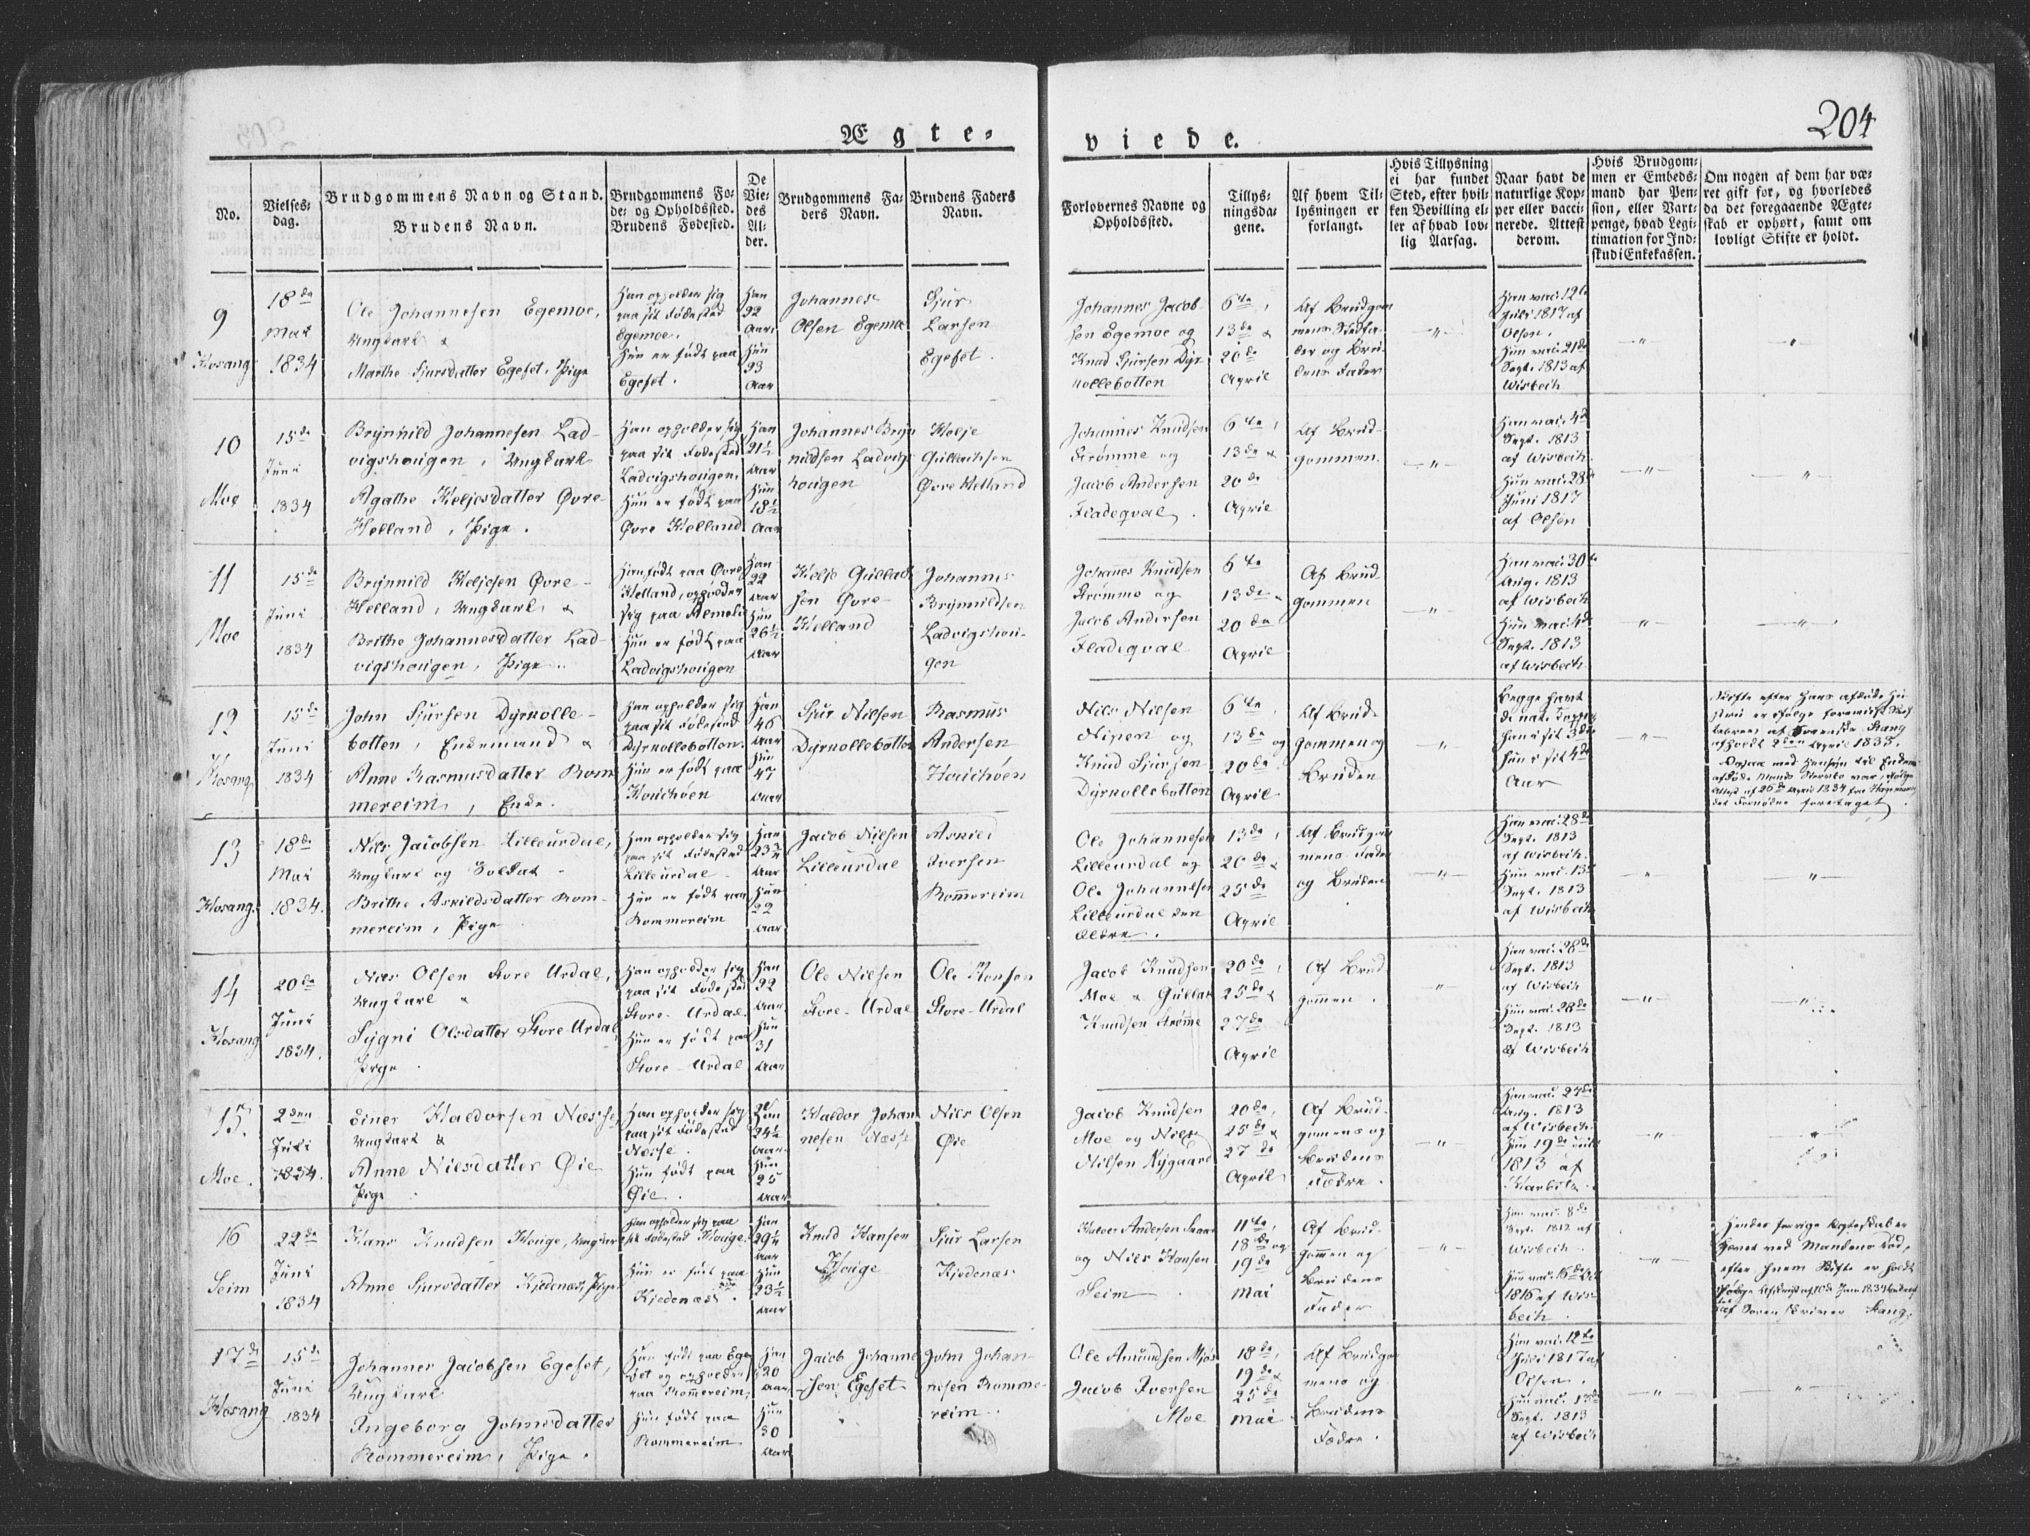 204
Ægte-
viede.
No.
Vielses-
dag.
Brudgommens Navn og Stand.
Brudens Navn.
Brudgommens Fø-
de- og Opholdssted.
Brudens Fødested.
De
Vie-
des
Al-
der.
Brudgommens Fa-
ders Navn.
Brudens Faders
Navn.
Forlovernes Navne og
Opholdssted.
Tillys-
ningsda-
gene.
Af hvem Til-
lysningen er
forlangt.
Hvis Tillysning
ei har fundet
Sted, efter hvil-
ken Bevilling el-
ler af hvad lov-
lig Aarsag.
Naar havt de
naturlige Kop-
per eller vacci-
nerede. Attest
derom.
Hvis Brudgom-
men er Embeds-
mand har Pen-
sion, eller Vart-
penge, hvad Legi-
timation for Ind-
skud i Enkekassen.
Om nogen af dem har væ-
ret gift før, og hvorledes
da det foregaaende Ægte-
skab er ophørt, samt om
lovligt Skifte er holdt.
9
Hosang
18de
Mai
1834
Ole Johannesen Egemoe,
Ungkarl &
Marthe Sjursdatter Egeset, Pige
Han opholder sig
paa sit Fødested
Egemoe.
Hun er født paa
Egeset.
Han
22
Aar
Hun
23
Aar
Johannes
Olsen Egemoe
Sjur
Larsen
Egeset.
Johannes Jacob-
sen Egemoe og
Knud Sjursen Dyr-
kollebotten
6te,
13de &
20de
April
Af Brudgom-
mens Stedfa-
der og Bru-
dens Fader
"
Han vac: 12te
Juli 1817 af
Olsen.
Hun vac: 21de
Sept. 1813 af
Wisbech
"
"
10
Moe
15de
Juni
1834
Brynnild Johannesen Lad-
vigshougen, Ungkarl
Agathe Heljesdatter Øvre-
Helland, Pige.
Han opholder sig
paa sit Fødested
Ladvigshougen,
Hun er født paa
Øvre Helland
Han
21½
Aar
Hun
18½
Aar
Johannes Bryn
nildsen Ladvigs
hougen
Helje
Gullachsen
Øvre Helland
Johannes Knudsen
Strømme og
Jacob Andersen
Fladeqval.
6te,
13de &
20de
April
Af Brud-
gommen.
"
Han vac: 4de
Sept. 1813
af Wisbech.
Hun vac: 28de
Juni 1817
af Olsen
"
"
11
Moe
15de
Juni
1834
Brynnild Heljesen Øvre-
Helland, Ungkarl &
Brithe Johannesdatter Lad-
vigshougen, Pige.
Han født paa Øvre
Helland, opholder
sig paa Almelid
Hun er født paa
Ladvigshougen
Han
22
Aar
Hun
26½
Aar
Helje Gullach
sen Øvre-
Helland
Johannes
Brynnildsen
Ladvigshou-
gen
Johanes Knudsen
Strømme og
Jacob Andersen
Fladeqval
6te
13de &
20de
April
Af Brud-
gommen
"
Han vac: 30te
Aug. 1813
af Wisbech
Hun vac: 4de
Sept. 1813
af Wisbech
"
"
12
Hosang
15de
Juni
1834
John Sjursen Dyrkolle-
botten, Enkemand &
Anne Rasmusdatter Rom
mereim, Enke.
Han opholder sig
paa sit Fødested
Dyrkollebotten.
Hun er født paa
Houchøen
Han
46
Aar
Hun
47
Aar
Sjur Nilsen
Dyrkollebotten
Rasmus
Andersen
Houchøen
Nils Nilsen
Nipen og
Knud Sjursen
Dyrkollebotten
6te,
13de og
20de
April
Af Brud-
gommen og
Bruden
"
Begge havt
de nat. Kopper
han i sit 3de
hun i sit 4de
Aar
"
Skifte efter Hans afdøde Hu-
stru er ifølge
afholdt 2den April 1835.
foretaget.
13
Hosang
18de
Mai
1834.
Nils Jacobsen Lilleurdal,
Ungkarl og Soldat &
Brithe Askildsdatter Rom-
mereim, Pige
Han opholder sig
paa sit Fødested
Lilleurdal.
Hun er født paa
Rommereim
Han
23¾
Aar
Hun
22
Aar
Jacob Nilsen
Lilleurdal
Askild
Iversen
Rommereim
Ole Johannesen
Lilleurdal og
Ole Johannesen
Lilleurdal den
Ældre.
13de,
20de &
25de
April
Af Brudgom
mens Fader
og Bruden
"
Han vac: 28de
Sept. 1813
af Wisbech.
Hun vac: 13de
Sept. 1813
af Wisbech
"
"
14
Hosang
20de
Juni
1834.
Nils Olsen Store Urdal,
Ungkarl &
Sygni Olsdatter Store-Urdal
Pige
Han opholder sig
paa sit Fødested
Store-Urdal.
Hun er født paa
Store-Urdal
Han
22
Aar
Hun
31
Aar
Ole Nilsen
Store-Urdal
Ole Monsen
Store-Urdal
Jacob Knudsen
Moe & Gullak
Knudsen Strøme
20de,
25de &
27de
April
Af Brud-
gommen.
"
Han vac: 28de
Sept. 1813
af Wisbech
Hun vac: 28de
Sept. 1813
af Wisbech
"
"
15.
Moe.
2den
Juli
1834.
Einer Haldorsen Næsse
Ungkarl &
Anne Nilsdatter Øie
Pige
Han opholder sig
paa sit Fødested
Næsse.
Hun født paa
Øie.
Han
24½
Aar
Hun
25
Aar
Haldor Johan
nesen Næsse
Nils Olsen
Øie
Jacob Knudsen
Moe og Nils
Nilsen Nygaard
20de,
25de &
27de
April
Af Brud-
gommens og
Brudens
Fædre.
"
Han vac: 27de
Aug. 1813
af Wisbech.
Hun 19de
1813 af
Harbitz.
"
"
16
Seim
22de
Juni
1834
Hans Knudsen Houge, Ungkar
Anne Sjursdatter Kjedenæs, Pige
Han opholder sig paa
sit Fødested Houge.
Hun er født paa
Kjedenæs.
Han
29¼
Aar
Hun
23½
Aar
Knud Hansen
Houge
Sjur Larsen
Kjedenæs
Halvor Andersen
og Nils Hansen
Seim.
11te,
18de og
19de
Mai
Af Brud-
gommen og
Brudens
Fader
"
Han vac: 8de
Sept. 1812 af
Wisbech.
Hun vac: 16de
1816 af Wis-
bech.
"
Hendes forrige Ægteskab er
hævet ved Mandens Død,
efter hvem Skifte er holdt
ifølge
af Sorenskriver Stang.
17de
Hosang
15de
Juni
1834
Johannes Jacobsen Egeset,
Ungkarl
Ingeborg Johnsdatter
Rommereim, Pige.
Han født paa Ege
set og opholder
paa Rommereim,
Hun født paa
Rommereim
Han
20
Aar
Hun
30
Aar
Jacob Johanne
sen Egeset
John Johan-
nesen Romme-
reim.
Ole Amundsen Mjøs
Jacob Iversen
Moe
18de,
19de &
25de
Mai
Af Brudgom
mens og
Brudens
Fædre.
"
Han vac: 12te
Juli 1817 af
Olsen.
Hun vac: 13de
Sept. 1813
af Wisbech
"
"